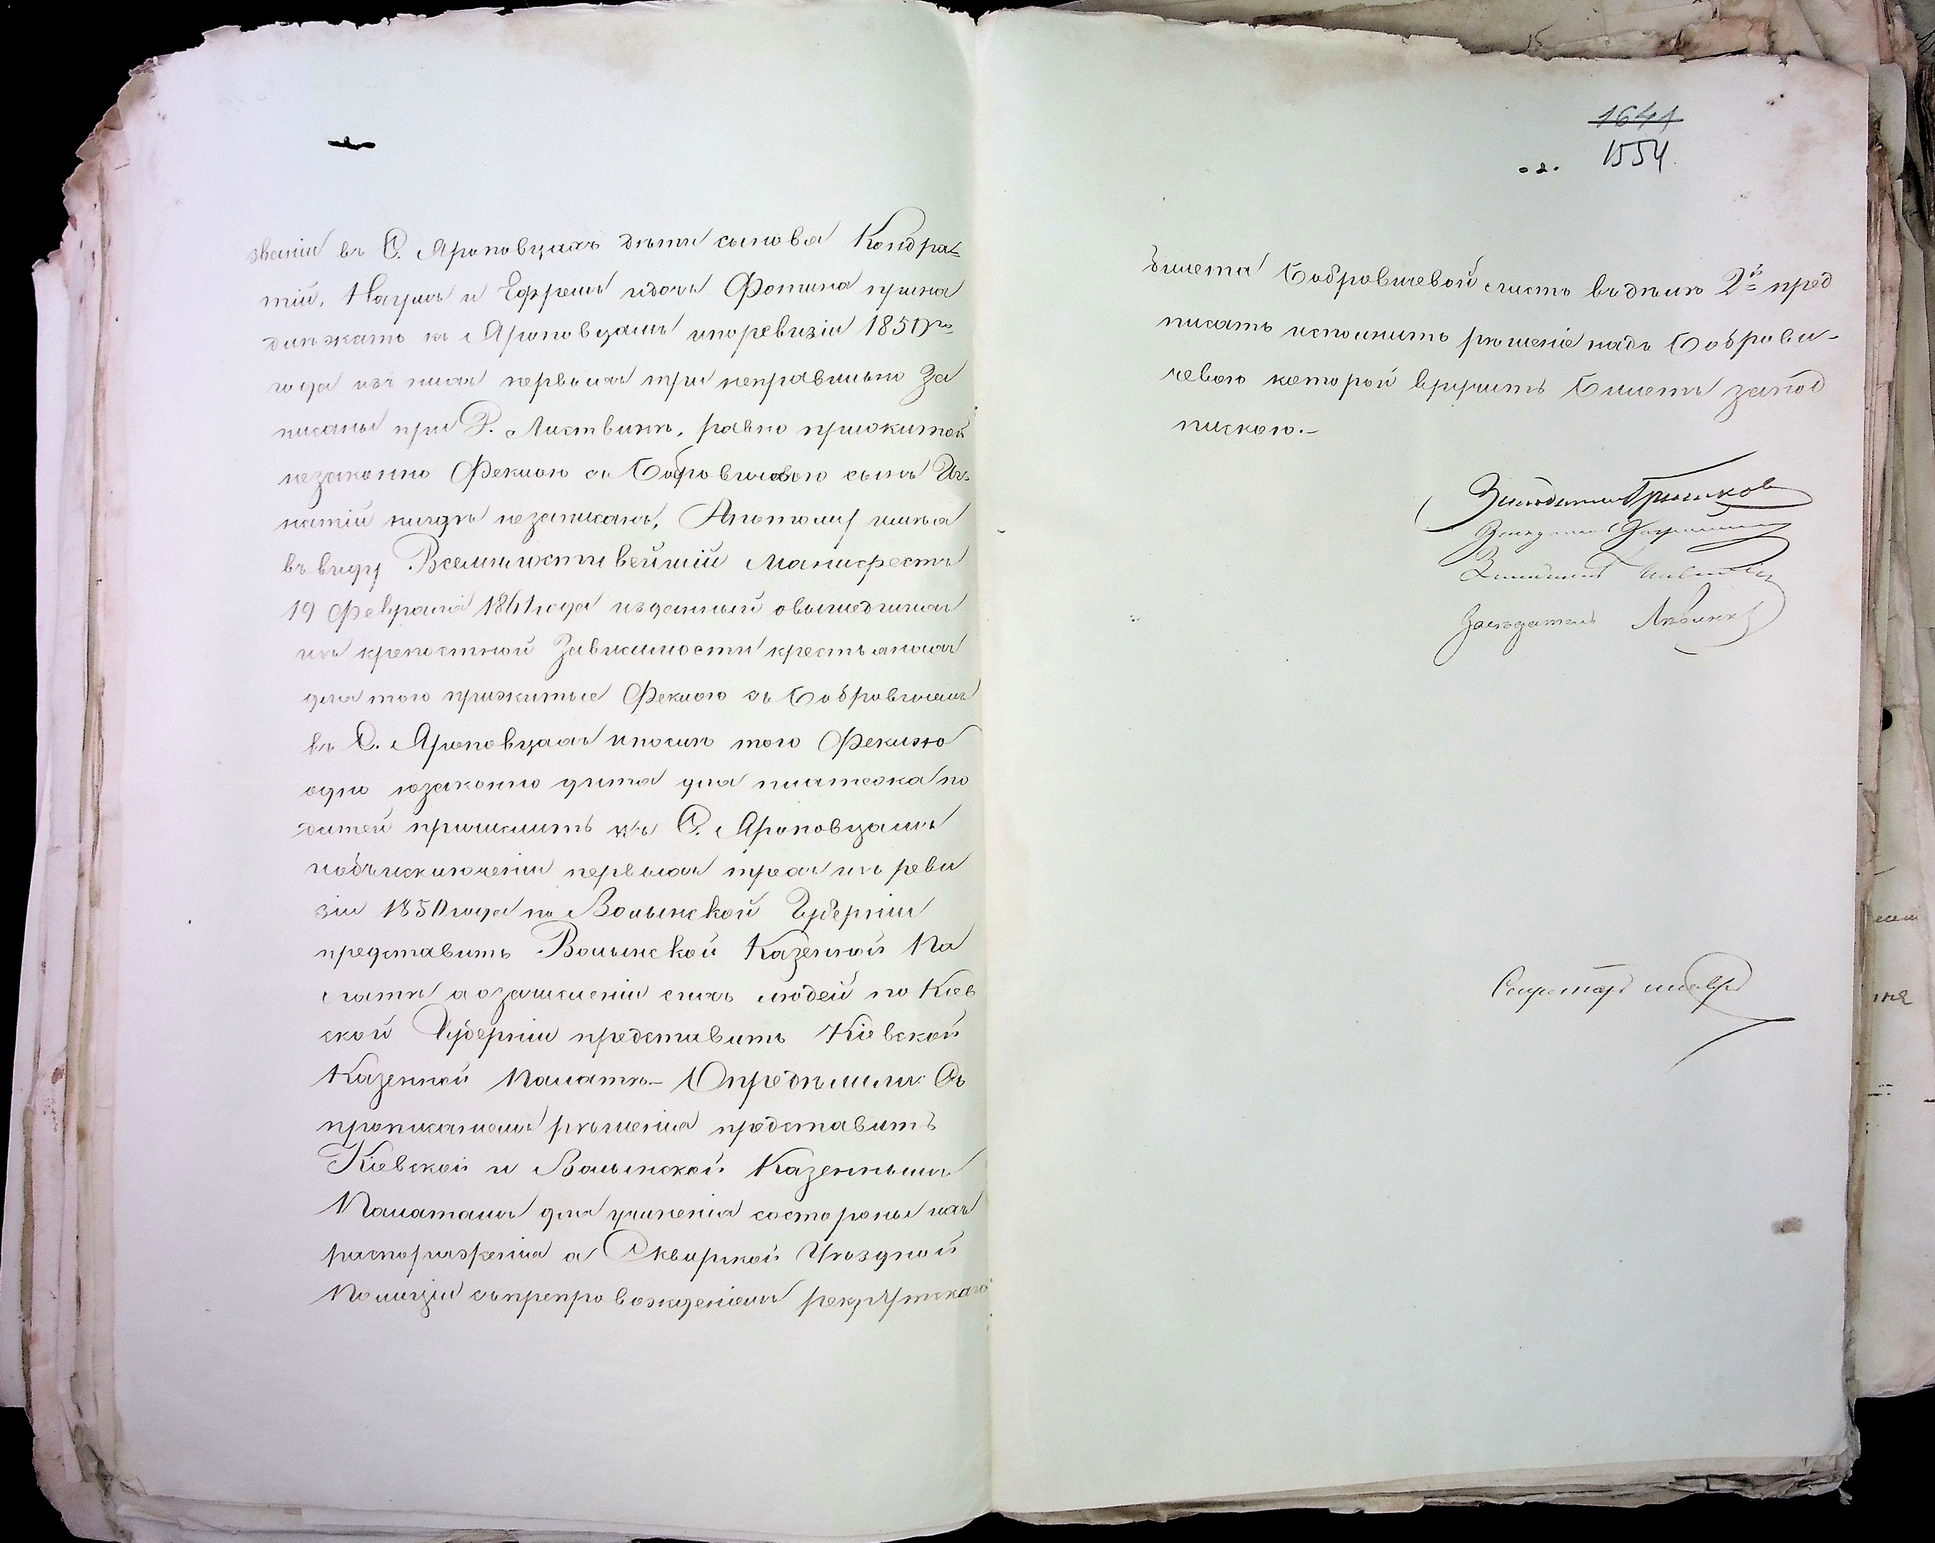 званіи въ С. Яроповцахъ дѣти сынова Кондра=
тій, Наумъ и Ефремъ идочь Фотина прина
длежатъ къ Яроповцамъ ипоревизіи 1850го
года изъ нихъ первыхъ три неправильно за
писаны при Р. Листвинѣ, равно прижитой
незаконно Феклою съ Бобровичовою сынъ Иг=
натій нигдѣ незаписанъ, Апотому имѣя
въ виду Всемилостивейшій Манифестъ
19 февраля 1861 года изданный овышедшихъ
изъ крепостной Зависимости крестьянахъ
для того прижитые Феклою съ Бобровичемъ
въ С. Яроповцахъ ипослѣ того Феклою
одно незаконно дитя для платежа по
датей причислить къ С. Яроповцамъ
иобъисключеніи первыхъ трехъ изъ реви
зіи 1850 года по Волынской Губерніи
представить Волынской Казенной Па
латѣ аозачисленіи сихъ людей по Кіев
ской Губерніи представить Кіевской
Казенной Палатѣ.— Опредѣлили: Съ
прописаніемъ рѣшенія представить
Кіевской и Волынской Казеннымъ
Палатамъ для учиненія состороны ихъ
распоряженія а Сквирской Уѣздной
Полиціи съпрепровожденіемъ рекрутскаго
1641
1554.
билета Бобровичевой числ въдѣлѣ 2й пред
писать исполнить рѣшеніе надъ Боброви-
чевою которой вручить Билетъ запод
пискою.—
Засѣдатель
Засѣдатель
Засѣдатель
Засѣдатель
Секретарь